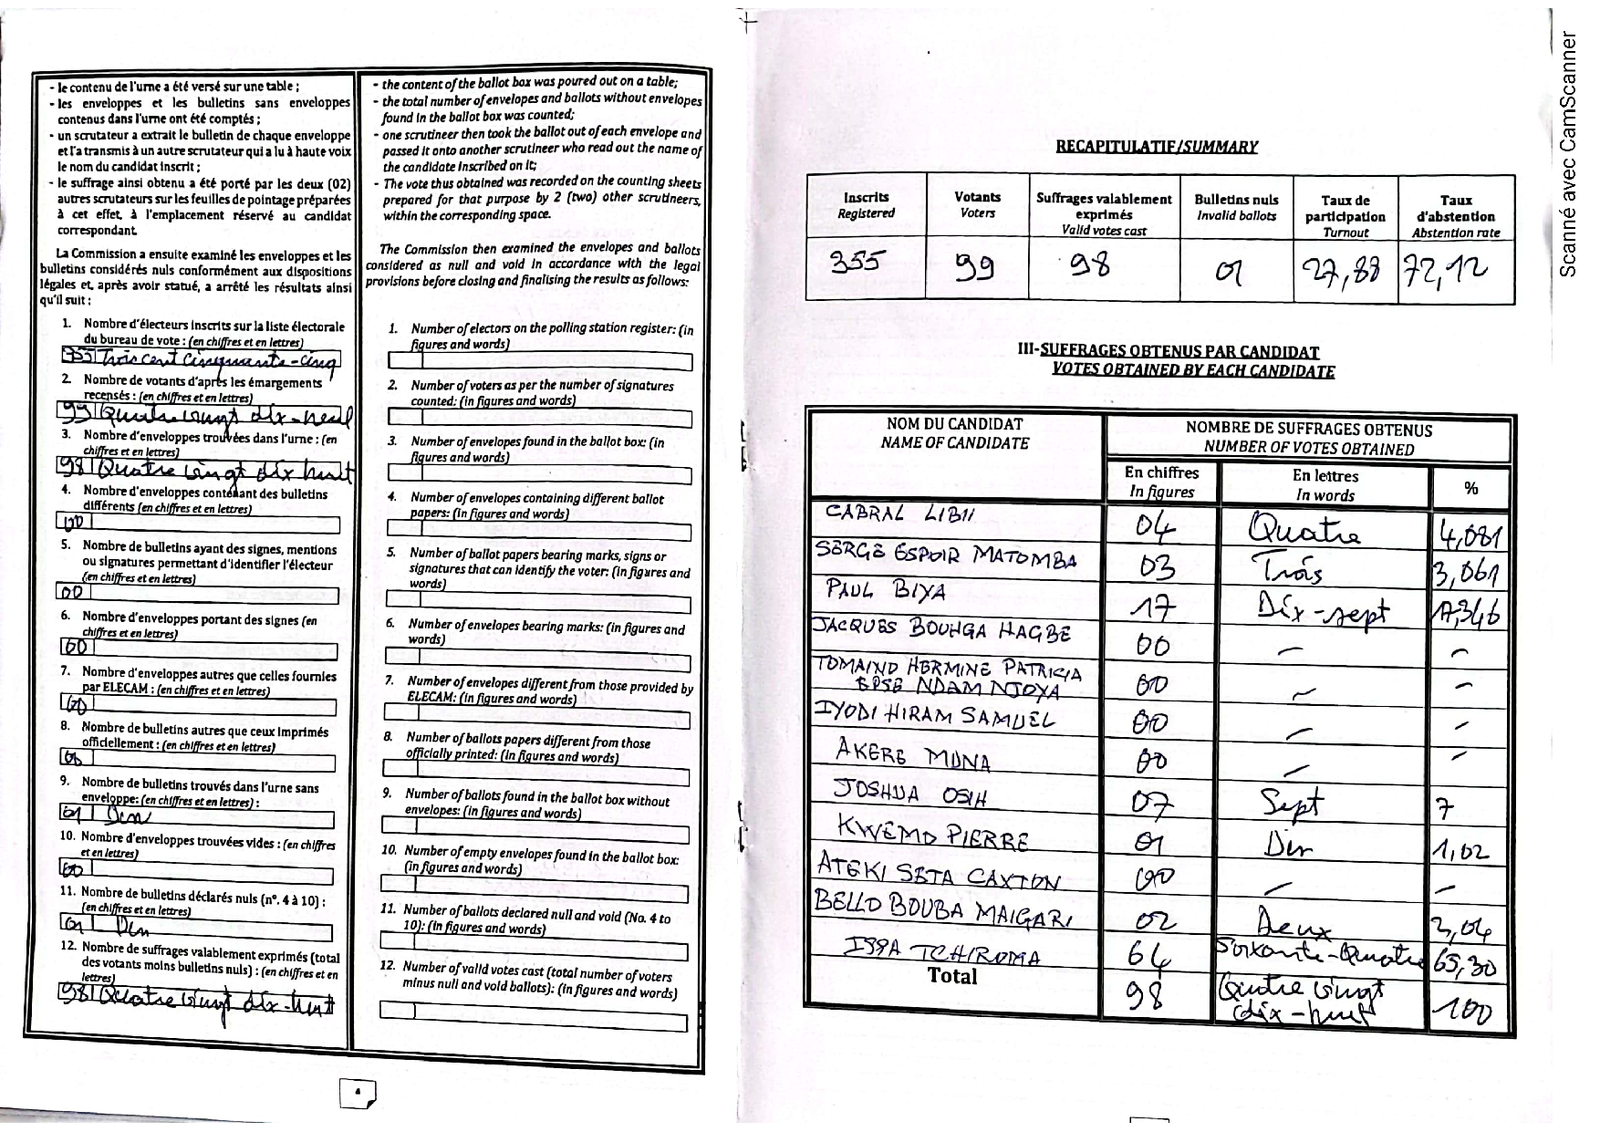 - le contenu de l'urne a été versé sur une table ;
- les enveloppes et les bulletins sans enveloppes
contenus dans l'urne ont été comptés ;
- un scrutateur a extrait le bulletin de chaque enveloppe
et l'a transmis à un autre scrutateur qui a lu à haute voix
le nom du candidat inscrit ;
- le suffrage ainsi obtenu a été porté par les deux (02)
autres scrutateurs sur les feuilles de pointage préparées
à cet effet, à l'emplacement réservé au candidat
correspondant.
La Commission a ensuite examiné les enveloppes et les
bulletins considérés nuls conformément aux dispositions
légales et, après avoir statué, a arrêté les résultats ainsi
qu'il suit :
1. Nombre d'électeurs inscrits sur la liste électorale
du bureau de vote : (en chiffres et en lettres)
355 Trois cent Cinquante-cinq
2. Nombre de votants d'après les émargements
recensés : (en chiffres et en lettres)
99 Quatre vingt dix-neuf
3. Nombre d'enveloppes trouvées dans l'urne : (en
chiffres et en lettres)
98 Quatre vingt dix huit
4. Nombre d'enveloppes contenant des bulletins
différents (en chiffres et en lettres)
00
5. Nombre de bulletins ayant des signes, mentions
ou signatures permettant d'identifier l'électeur
(en chiffres et en lettres)
00
6. Nombre d'enveloppes portant des signes (en
chiffres et en lettres)
00
7. Nombre d'enveloppes autres que celles fournies
par ELECAM : (en chiffres et en lettres)
00
8. Nombre de bulletins autres que ceux imprimés
officiellement : (en chiffres et en lettres)
00
9. Nombre de bulletins trouvés dans l'urne sans
enveloppe: (en chiffres et en lettres) :
01
10. Nombre d'enveloppes trouvées vides : (en chiffres
et en lettres)
00
11. Nombre de bulletins déclarés nuls (n°. 4 à 10) :
(en chiffres et en lettres)
01
12. Nombre de suffrages valablement exprimés (total
des votants moins bulletins nuls) : (en chiffres et en
lettres)
98 Quatre vingt dix-huit
- the content of the ballot box was poured out on a table;
- the total number of envelopes and ballots without envelopes
found in the ballot box was counted;
- one scrutineer then took the ballot out of each envelope and
passed it onto another scrutineer who read out the name of
the candidate inscribed on it;
- The vote thus obtained was recorded on the counting sheets
prepared for that purpose by 2 (two) other scrutineers,
within the corresponding space.
The Commission then examined the envelopes and ballots
considered as null and void in accordance with the legal
provisions before closing and finalising the results as follows:
1. Number of electors on the polling station register: (in
figures and words)
2. Number of voters as per the number of signatures
counted: (in figures and words)
3. Number of envelopes found in the ballot box: (in
figures and words)
4. Number of envelopes containing different ballot
papers: (in figures and words)
5. Number of ballot papers bearing marks, signs or
signatures that can identify the voter: (in figures and
words)
6. Number of envelopes bearing marks: (in figures and
words)
7. Number of envelopes different from those provided by
ELECAM: (in figures and words)
8. Number of ballots papers different from those
officially printed: (in figures and words)
9. Number of ballots found in the ballot box without
envelopes: (in figures and words)
10. Number of empty envelopes found in the ballot box:
(in figures and words)
11. Number of ballots declared null and void (No. 4 to
10): (in figures and words)
12. Number of valid votes cast (total number of voters
minus null and void ballots): (in figures and words)
RECAPITULATIF/SUMMARY
Inscrits Registered
Votants Voters
Suffrages valablement exprimés Valid votes cast
Bulletins nuls Invalid ballots
Taux de participation Turnout
Taux d'abstention Abstention rate
355 99 98 01 27,88 72,12
III-SUFFRAGES OBTENUS PAR CANDIDAT
VOTES OBTAINED BY EACH CANDIDATE
NOM DU CANDIDAT NOMBRE DE SUFFRAGES OBTENUS
NAME OF CANDIDATE NUMBER OF VOTES OBTAINED
En chiffres En lettres %
In figures In words
CABRAL LIBII 04 Quatre 4,081
SERGE ESPOIR MATOMBA 03 Trois 3,061
PAUL BIYA 17 Dix-sept 17,346
JACQUES BOUHGA HAGBE 00 - -
TOMAINO HERMINE PATRICIA
EPSE NDAM NJOYA 00 - -
IYODI HIRAM SAMUEL 00 - -
AKERE MUNA 00 - -
JOSHUA OSIH 07 Sept 7
KWEMO PIERRE 01 1,02
ATEKI SETA CAXTON 00 - -
BELLO BOUBA MAIGARI 02 Deux 2,04
ISSA TCHIROMA 64 Soixante-Quatre 65,30
Total 98 Quatre vingt
dix-huit 100
Scanné avec CamScanner